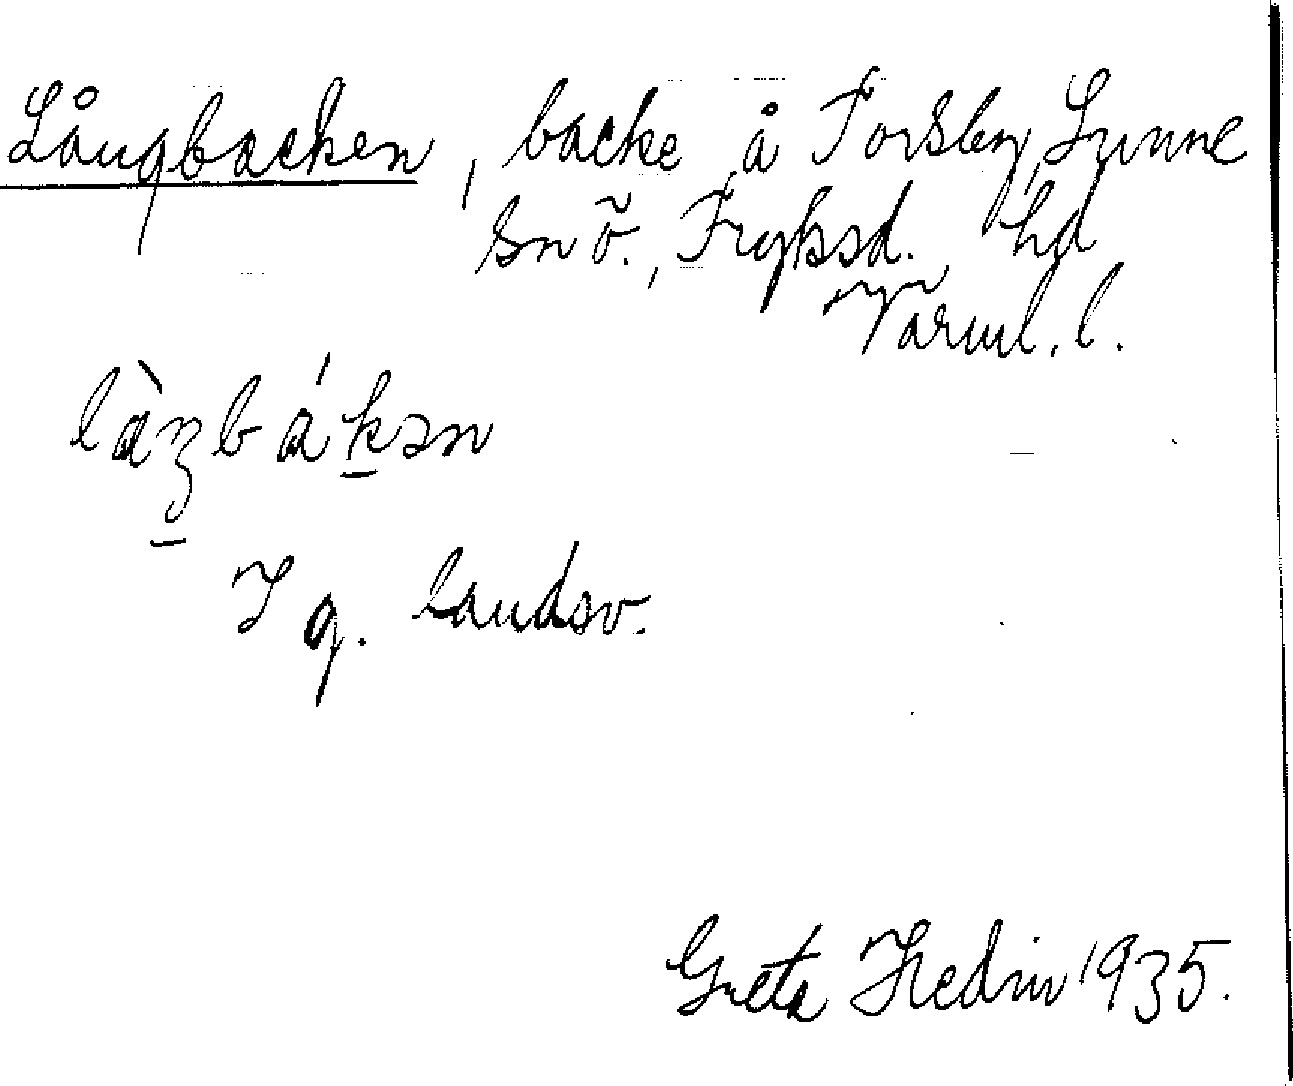 Långbacken, backe å Torsby, Sunne
sn ö., Fryksd. hd
Värml. l.
làʒbákən
I g. landsv.
Greta Hedin 1935.